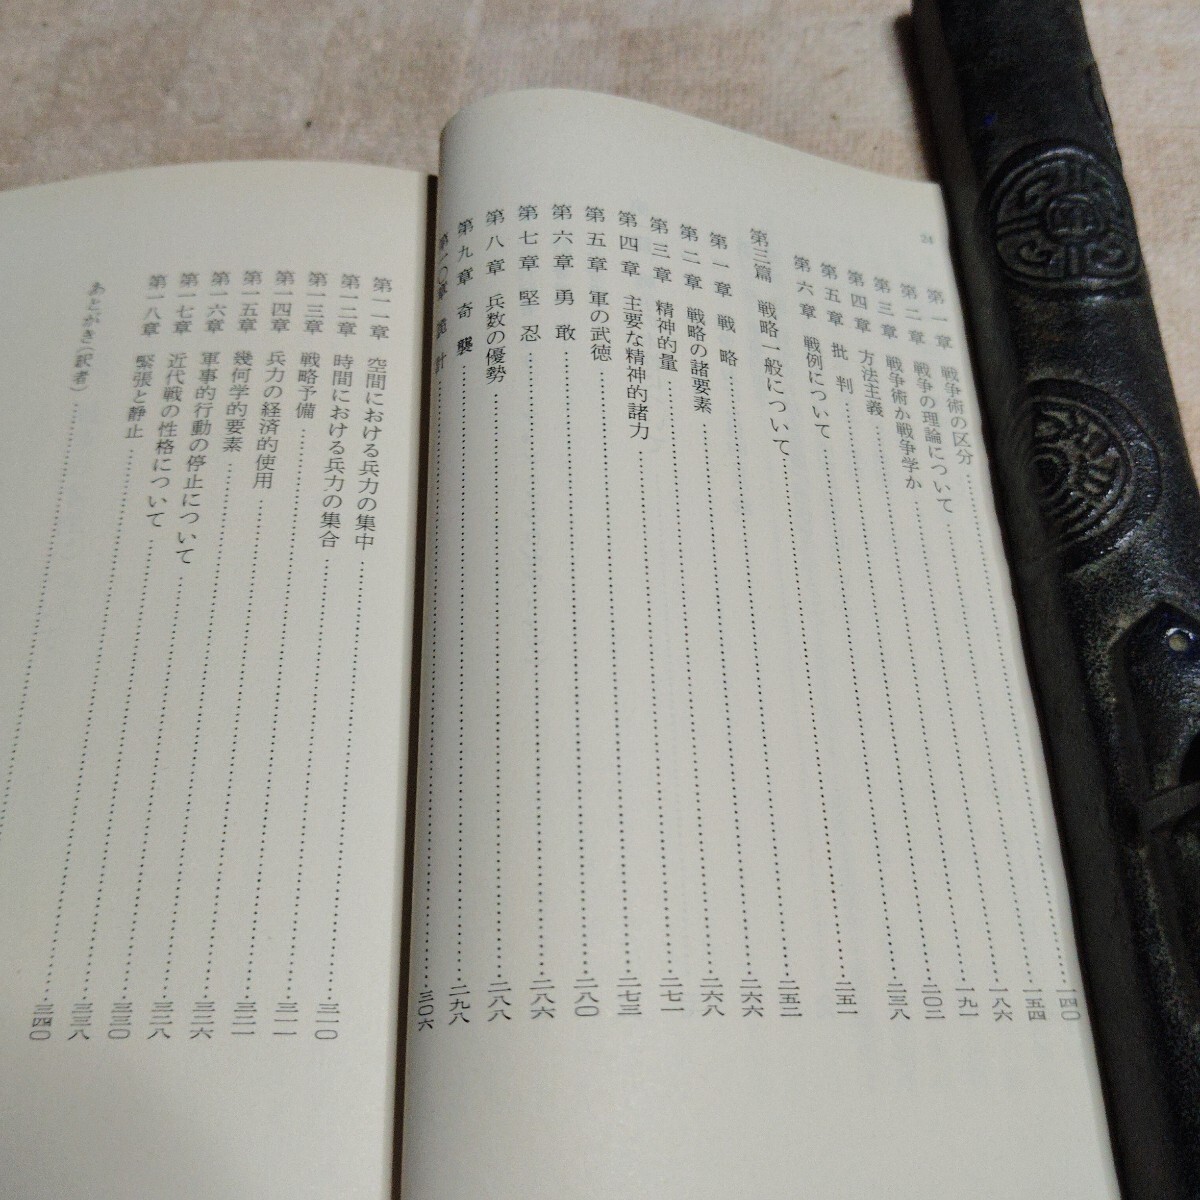 24
第一章 戦争術の区分……一四〇
第二章 戦争の理論について……一五四
第三章 戦争術か戦争学か……一八六
第四章 方法主義……一九一
第五章 批判……二〇二
第六章 戦例について……二三八
第三篇 戦略一般について……二五一
第一章 戦略……二五二
第二章 戦略の諸要素……二六六
第三章 精神的量……二六八
第四章 主要な精神的諸力……二七一
第五章 軍の武徳……二七三
第六章 勇敢……二八〇
第七章 堅忍……二八六
第八章 兵数の優勢……二八八
第九章 奇襲……二九八
第一〇章 詭計……三〇六
第一一章 空間における兵力の集中……三一〇
第一二章 時間における兵力の集合……三一一
第一三章 戦略予備……三二一
第一四章 兵力の経済的使用……三二六
第一五章 幾何学的要素……三二八
第一六章 軍事的行動の停止について……三三〇
第一七章 近代戦の性格について……三三八
第一八章 緊張と静止……三四〇
あとがき（訳者）……